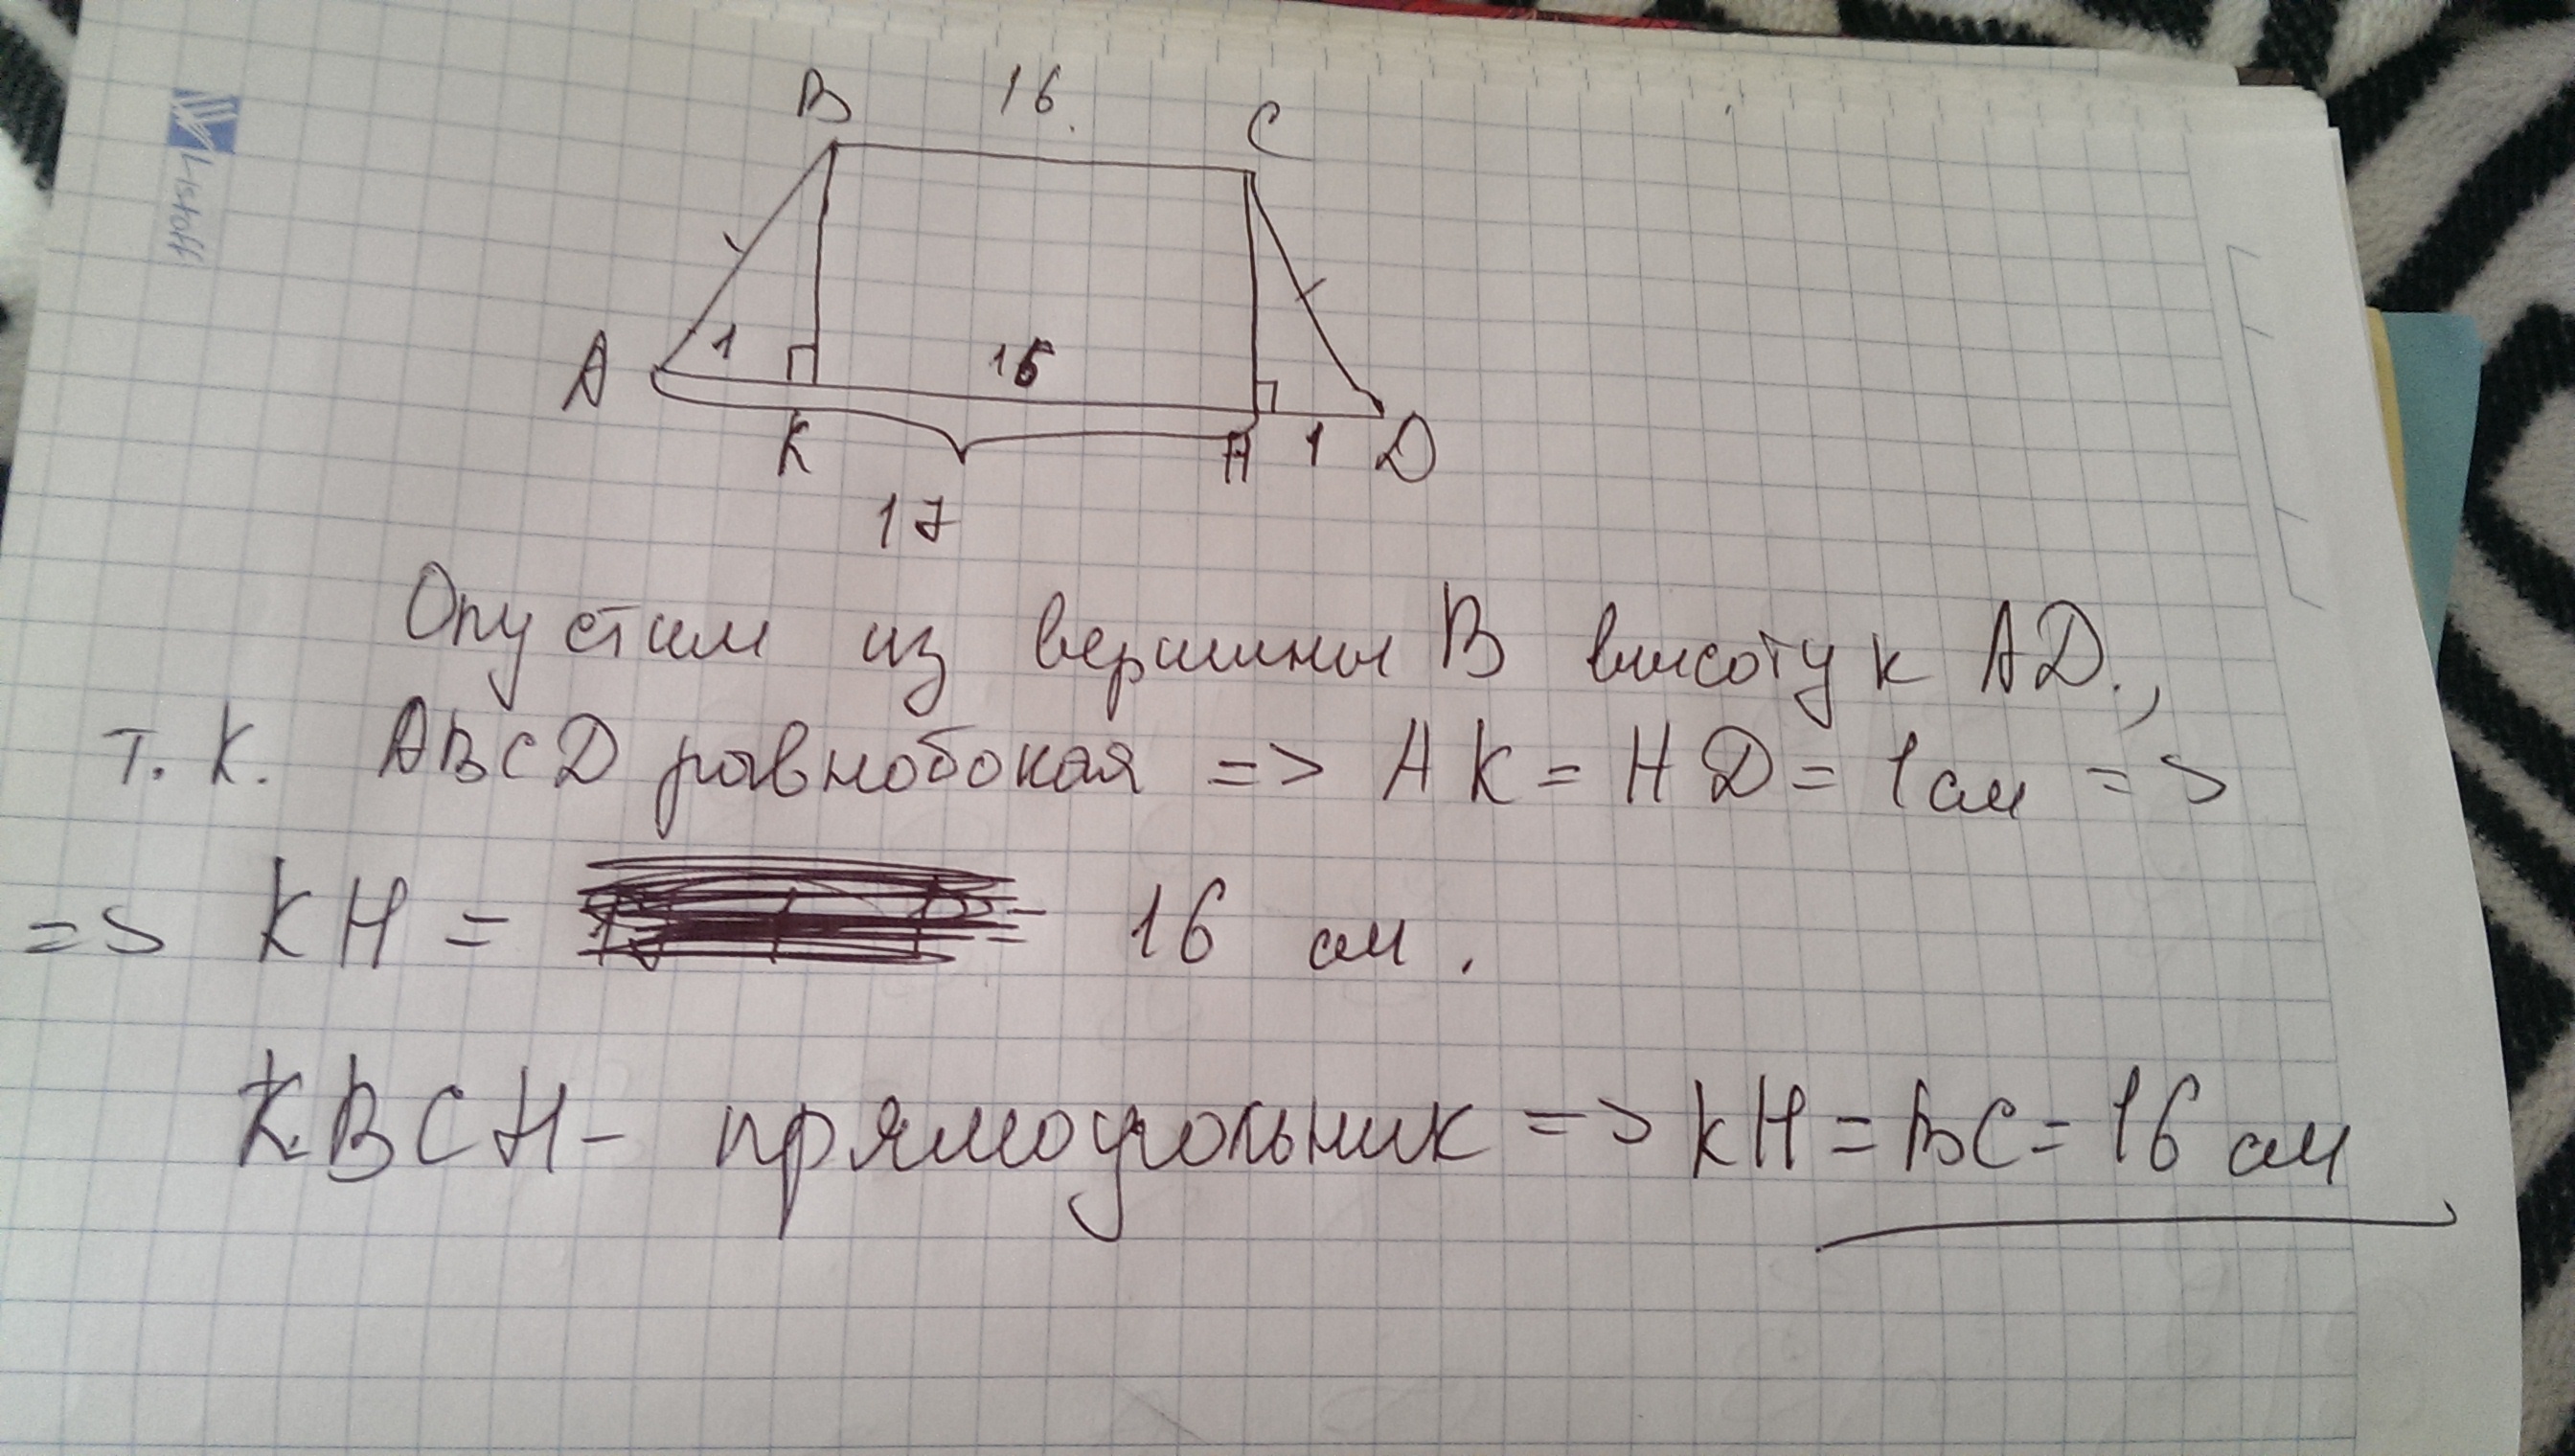 Listoff
B 16. C
A 1 16
K H 1 D
17
Опустим из вершины B высоту к AD.,
т. к. ABCD равнобокая => AK = HD = 1 см =>
=> KH = = 16 см.
KBCH - прямоугольник => KH = BC = 16 см